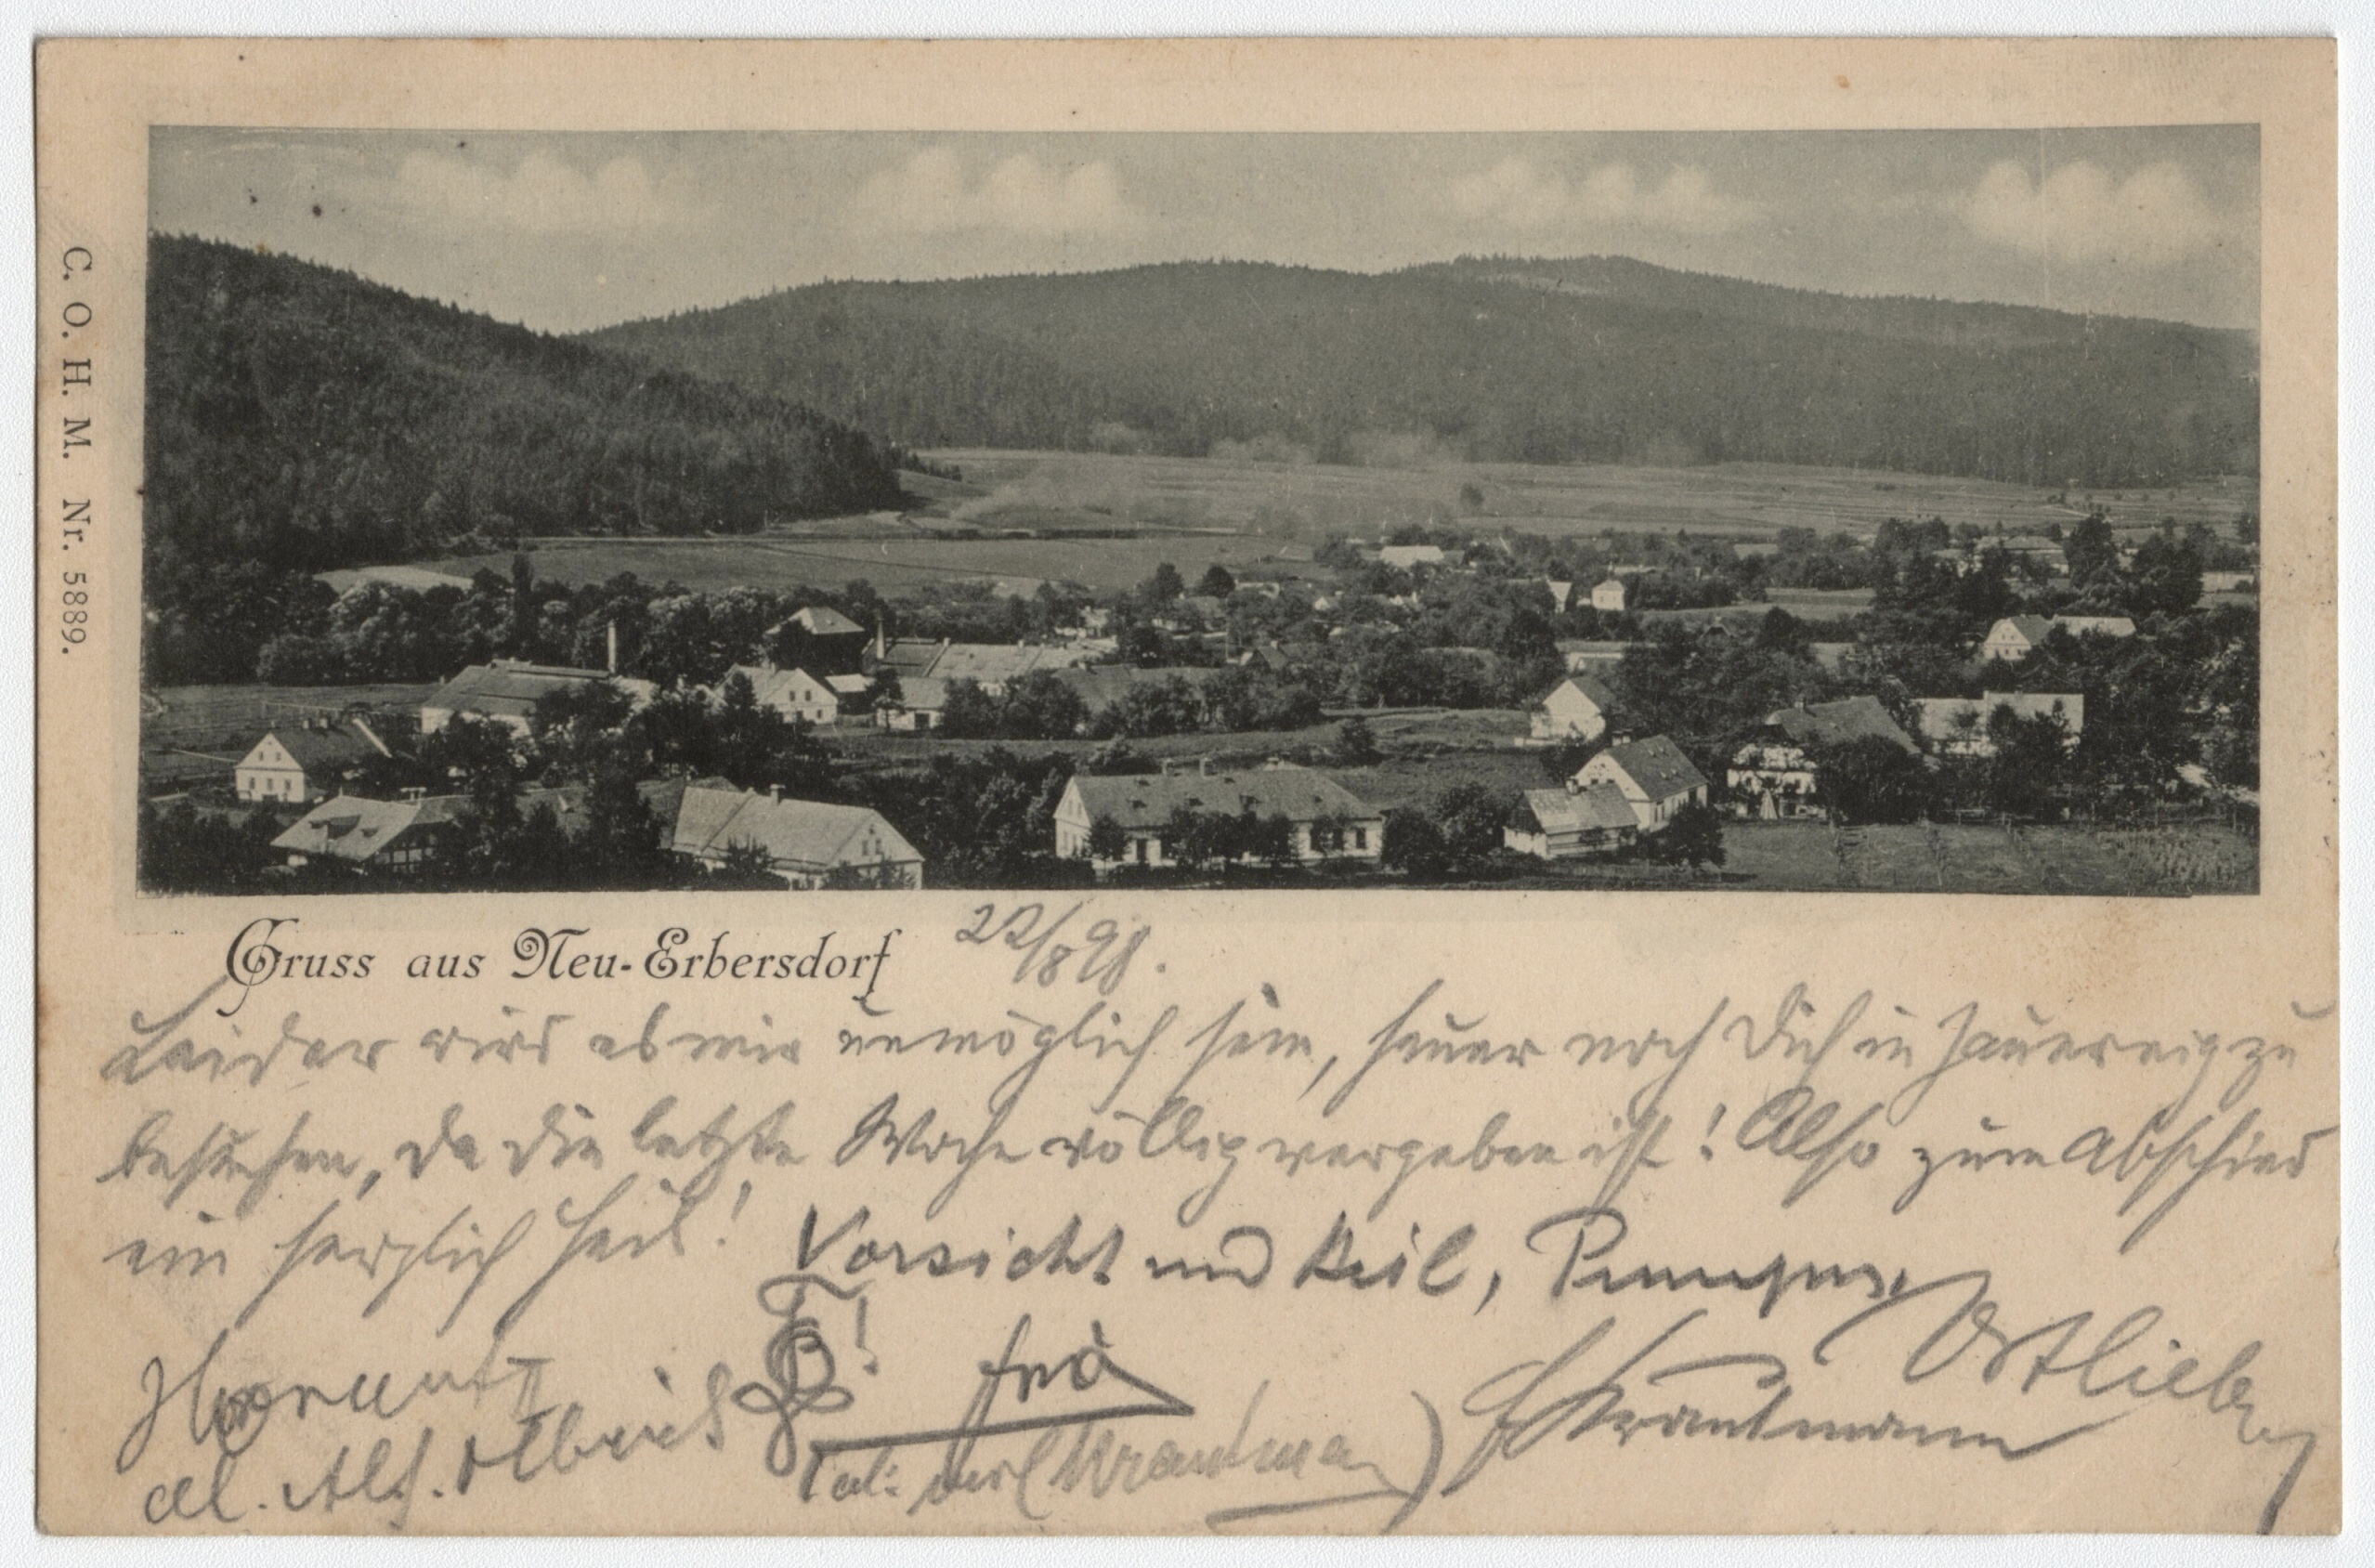 C. O. H. M. Nr. 5889.
Gruss aus Neu-Erbersdorf 22/8 98.
Leider wird es mir unmöglich sein, heuer noch Dich in zu
besuchen, da die letzte Woche völlig vergeben ist! Also zum Abschied
ein herzlich Heil! Vorsicht und Heil,
Ostlieb
Krautmann
al. Alf. Olbrich